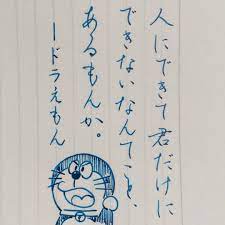 人にできて君だけに
できないなんてこと、
あるもんか。
ードラえもん